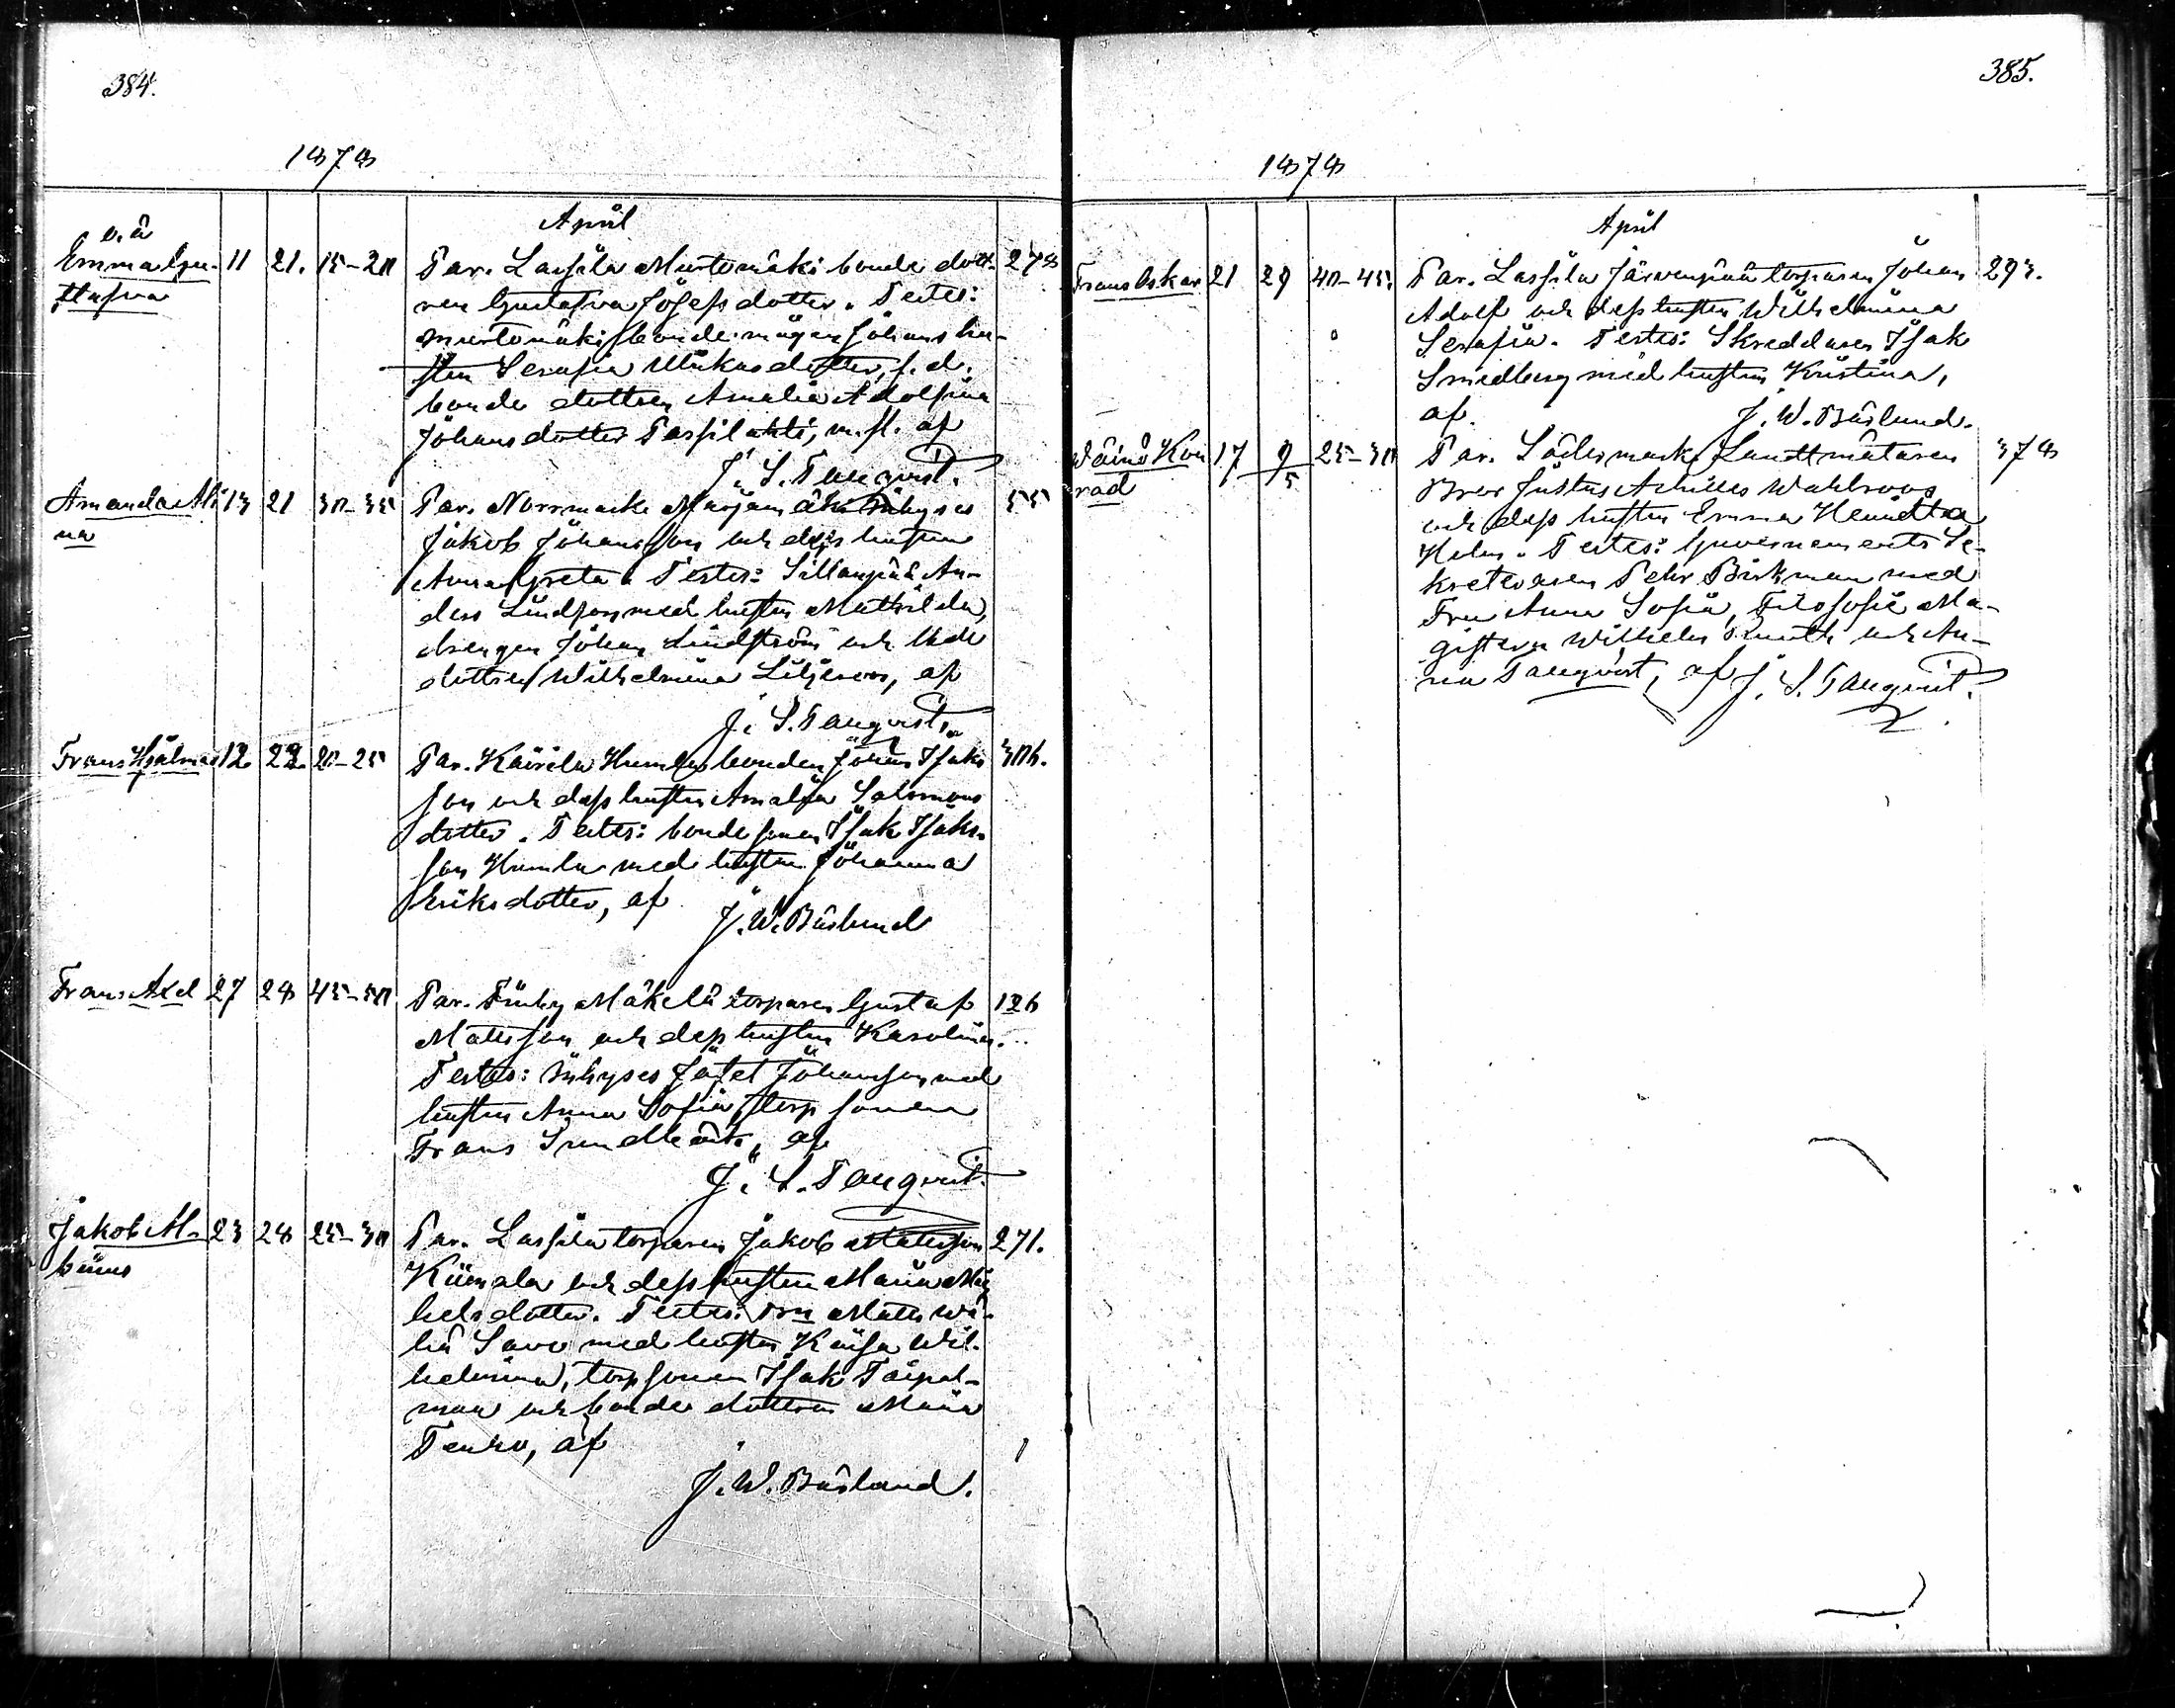 384.
1878
April
o.ä
Emma Gu-
stafva
11 21. 15-20
Par. Lassila Murtomäki bonde dott-
ren Gustafva Josefsdotter. Testes:
Murtomäki bondemågen Johans hu-
strun Serafia Mikaelsdotter, f. d.
bonde dottren Amalia Adolfina
Johansdotter Passilahti, m. fl. af
J. S. Tanqvist.
278
Amanda Ali-
na
13 21 30-35
Par. Norrmark Marjamäki inhyses
Jakob Johansson och dess hustru
Anna Greta. Testes: Sillanpää An-
ders Lindfors med hustru Mathilda,
drengen Johan Lindström och
dottren Wilhelmina Liljeroos, af
J. S. Tanqvist.
55
Frans Hjalmar
12 22. 20-25
Par. Kairila Humla bonden Johan Isaks
son och dess hustru Amalia Salomons
dotter. Testes: bonde sonen Isak Isaks-
son Humla med hustru Johanna
Eriksdotter, af
J. W. Båslund
306.
Frans Axel
27 28 45-50
Par. Finby Mäkelä torparen Gustaf
Mattsson och dess hustru Karolina.
Testes: inhyses Johansson med
hustru Anna Sofia, torp sonen
Frans af
J. S. Tanqvist.
126
Jakob Al-
binus
23 28 25-30
Par. Lassila torparen Jakob Mattsson
Kiimala och dess hustru Maria Mi-
helsdotter. Testes: Matts Wä-
hä Savo med hustru Kaisa Wil-
helmina, torp sonen Isak Taipal-
maa och bonde dottren Maria
Tenho, af
J. W. Båslund.
271.
385.
1878
April
Frans Oskar
21 29 40-45.
Par. Lassila Järvenpää torparen Johan
Adolf och dess hustru Wilhelmina
Serafia. Testes: Skreddaren Isak
Smedberg med hustru Kristina,
af. J. W. Båslund.
293.
Wäinö Kon
rad
17 9/5 25-30
Par. Södermark Landtmätaren
Justus Achilles Wahlroos
och dess hustru Emma Henrietta
Holm. Testes: Guvernements Se-
kreteraren Pehr Birkman med
Fru Anna Sofia, Filosofie Ma-
gistern Wilhelm och An-
na Tanqvist, af J. S. Tanqvist.
378